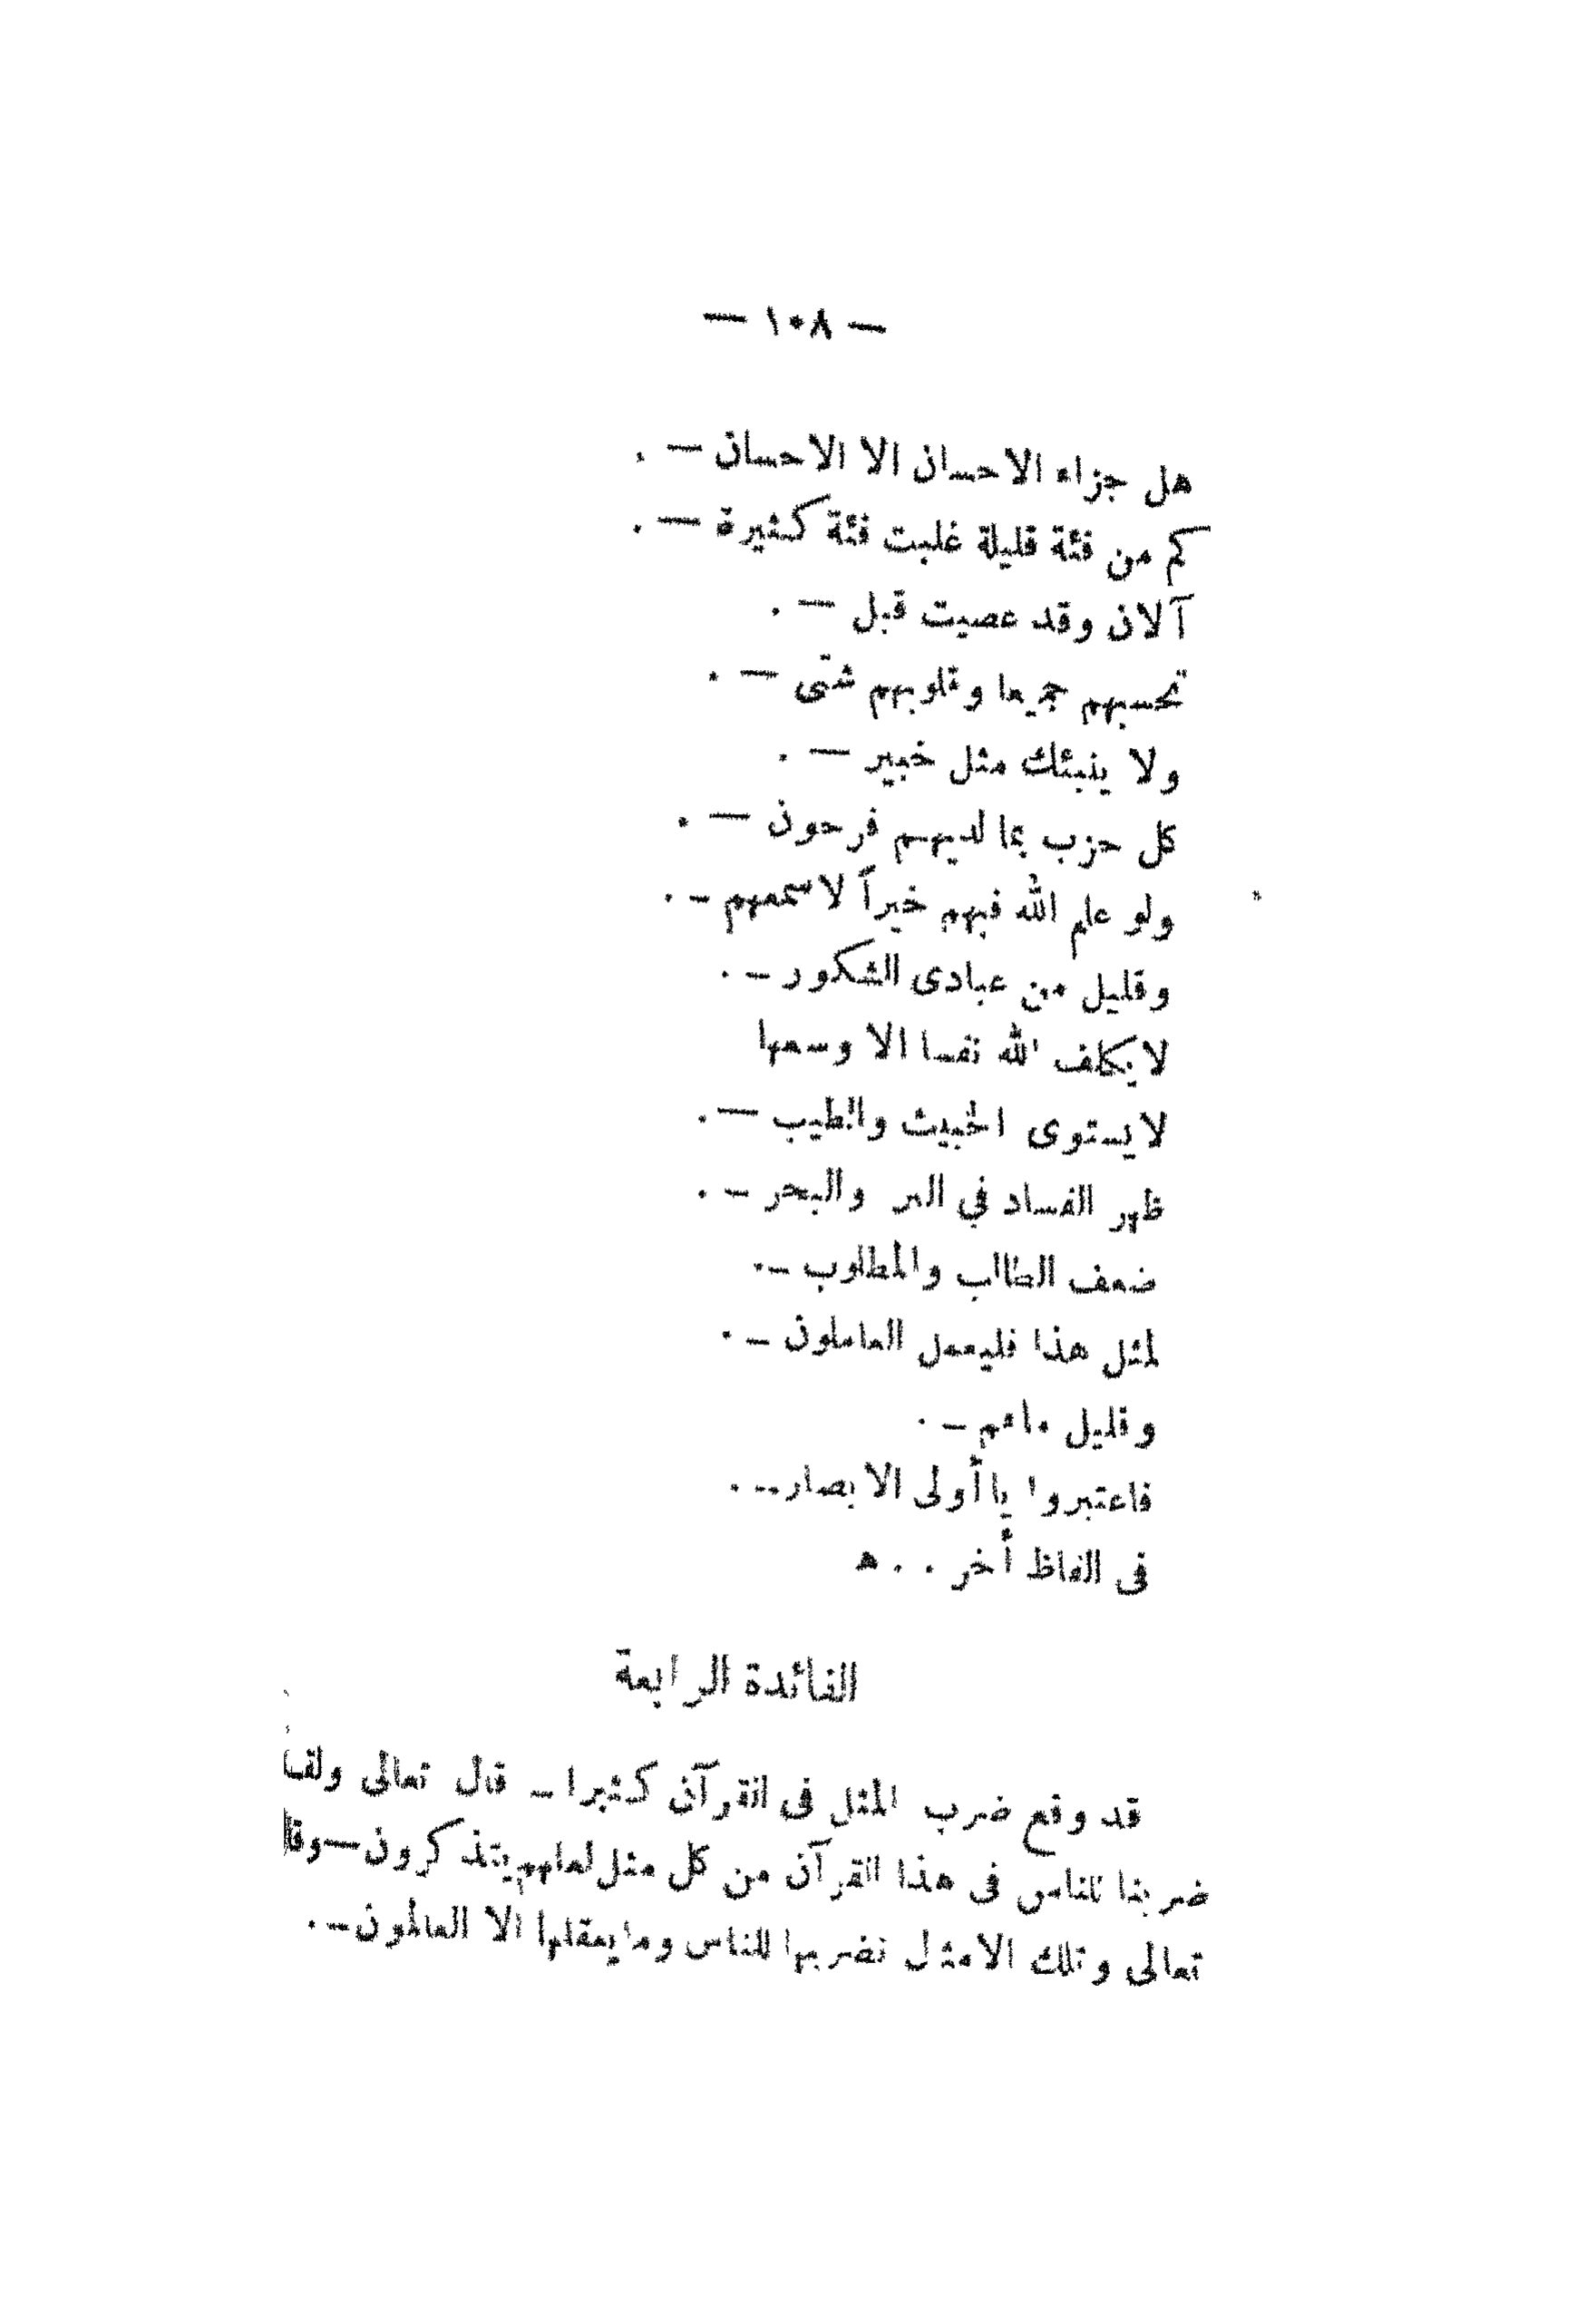 — ١٠٨ —
هل جزاء الاحسان الا الاحسان — .
كم من فئة قليلة غلبت فئة كثيرة — .
آلان وقد عصيت قبل — .
تحسبهم جميعا وقلوبهم شتى — .
ولا ينبئك مثل خبير — .
كل حزب بما لديهم فرحون — .
ولو علم الله فيهم خيراً لاسمعهم – .
وقليل من عبادى الشكور – .
لا يكلف الله نفسا الا وسعها
لا يستوى الخبيث والطيب — .
ظهر الفساد في البر والبحر – .
ضعف الطالب والمطلوب – .
لمثل هذا فليعمل العاملون – .
وقليل ماهم – .
فاعتبروا يا أولى الابصار – .
فى الفاظ أخر . . ه
الفائدة الرابعة
قد وقع ضرب المثل فى القرآن كثيرا – قال تعالى
ضربنا للناس فى هذا القرآن من كل مثل لعلهم يتذكرون —
تعالى وتلك الامثل نضربها للناس وما يعقلها الا العالمون – .